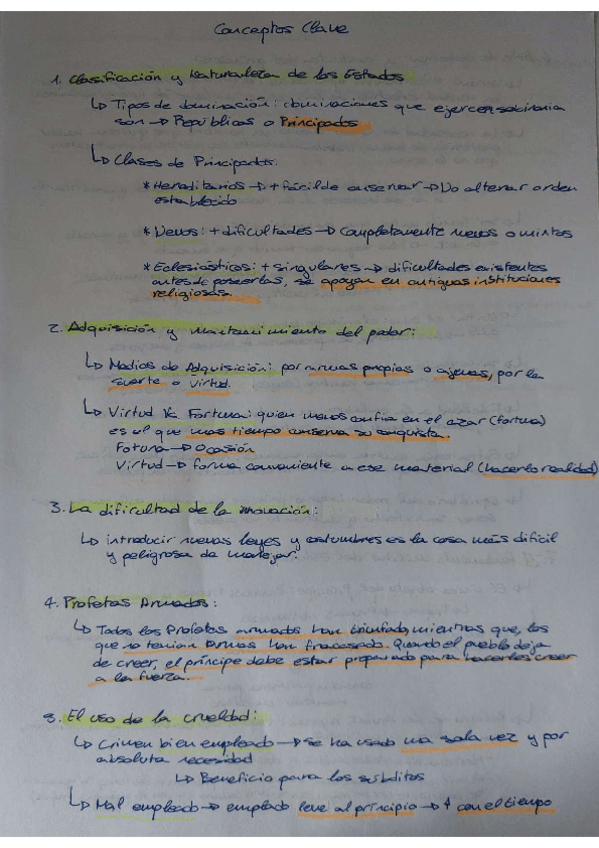 Conceptos Clave
1. Clasificación y Naturaleza de los Estados
↳ Tipos de dominación: dominaciones que ejercen soberania
son → Repúblicas o Principados
↳ Clases de Principados:
* Hereditarios → + fácil de conservar → No alterar orden
establecido
* Nuevos: + dificultades → Completamente nuevos o mixtos
* Eclesiásticos: + singulares → dificultades existentes
antes de poseerlas, se apoyan en antiguas instituciones
religiosas.
2. Adquisición y mantenimiento del poder:
↳ Medios de Adquisición: por armas propias o ajenas, por la
suerte o virtud.
↳ Virtud Vs Fortuna: quien menos confia en el azar (fortuna)
es el que mas tiempo conserva su conquista.
Fortuna → Ocasión
Virtud → forma conveniente a ese material (hacerlo realidad)
3. La dificultad de la innovación:
↳ introducir nuevas leyes y costumbres es la cosa más dificil
y peligrosa de manejar.
4. Profetas Armados:
↳ Todos los Profetas armados han triunfado, mientras que, los
que no tenian armas han fracasado. Quando el pueblo deja
de creer, el príncipe debe estar preparado para hacerles creer
a la fuerza.
5. El uso de la crueldad:
↳ Crimen bien empleado → se ha usado una sola vez y por
absoluta necesidad
↳ Beneficio para los súbditos
↳ Mal empleado → empleado leve al principio → ↑ con el tiempo